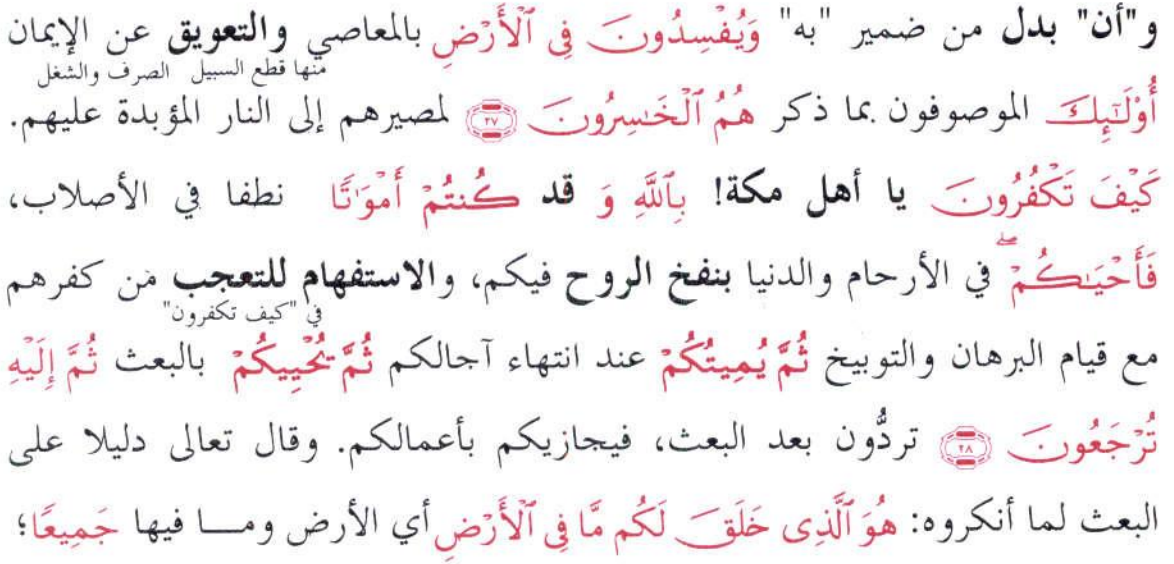 و"أن" بدل من ضمير "به" وَيُفْسِدُونَ فِي ٱلْأَرْضِ بالمعاصي والتعويق عن الإيمان
منها قطع السبيل الصرف والشغل
أُوْلَـٰٓئِكَ الموصوفون بما ذكر هُمُ ٱلْخَـٰسِرُونَ ٢٧ لمصيرهم إلى النار المؤبدة عليهم.
كَيْفَ تَكْفُرُونَ يا أهل مكة! بِٱللَّهِ وَ قد كُنتُمْ أَمْوَٰتًا نطفا في الأصلاب،
فَأَحْيَـٰكُمْ ۖ في الأرحام والدنيا بنفخ الروح فيكم، والاستفهام للتعجب من كفرهم
في "كيف تكفرون"
مع قيام البرهان والتوبيخ ثُمَّ يُمِيتُكُمْ عند انتهاء آجالكم ثُمَّ يُحْيِيكُمْ بالبعث ثُمَّ إِلَيْهِ
تُرْجَعُونَ ٢٨ تردُّون بعد البعث، فيجازيكم بأعمالكم. وقال تعالى دليلا على
البعث لما أنكروه: هُوَ ٱلَّذِى خَلَقَ لَكُم مَّا فِي ٱلْأَرْضِ أي الأرض وما فيها جَمِيعًا؛